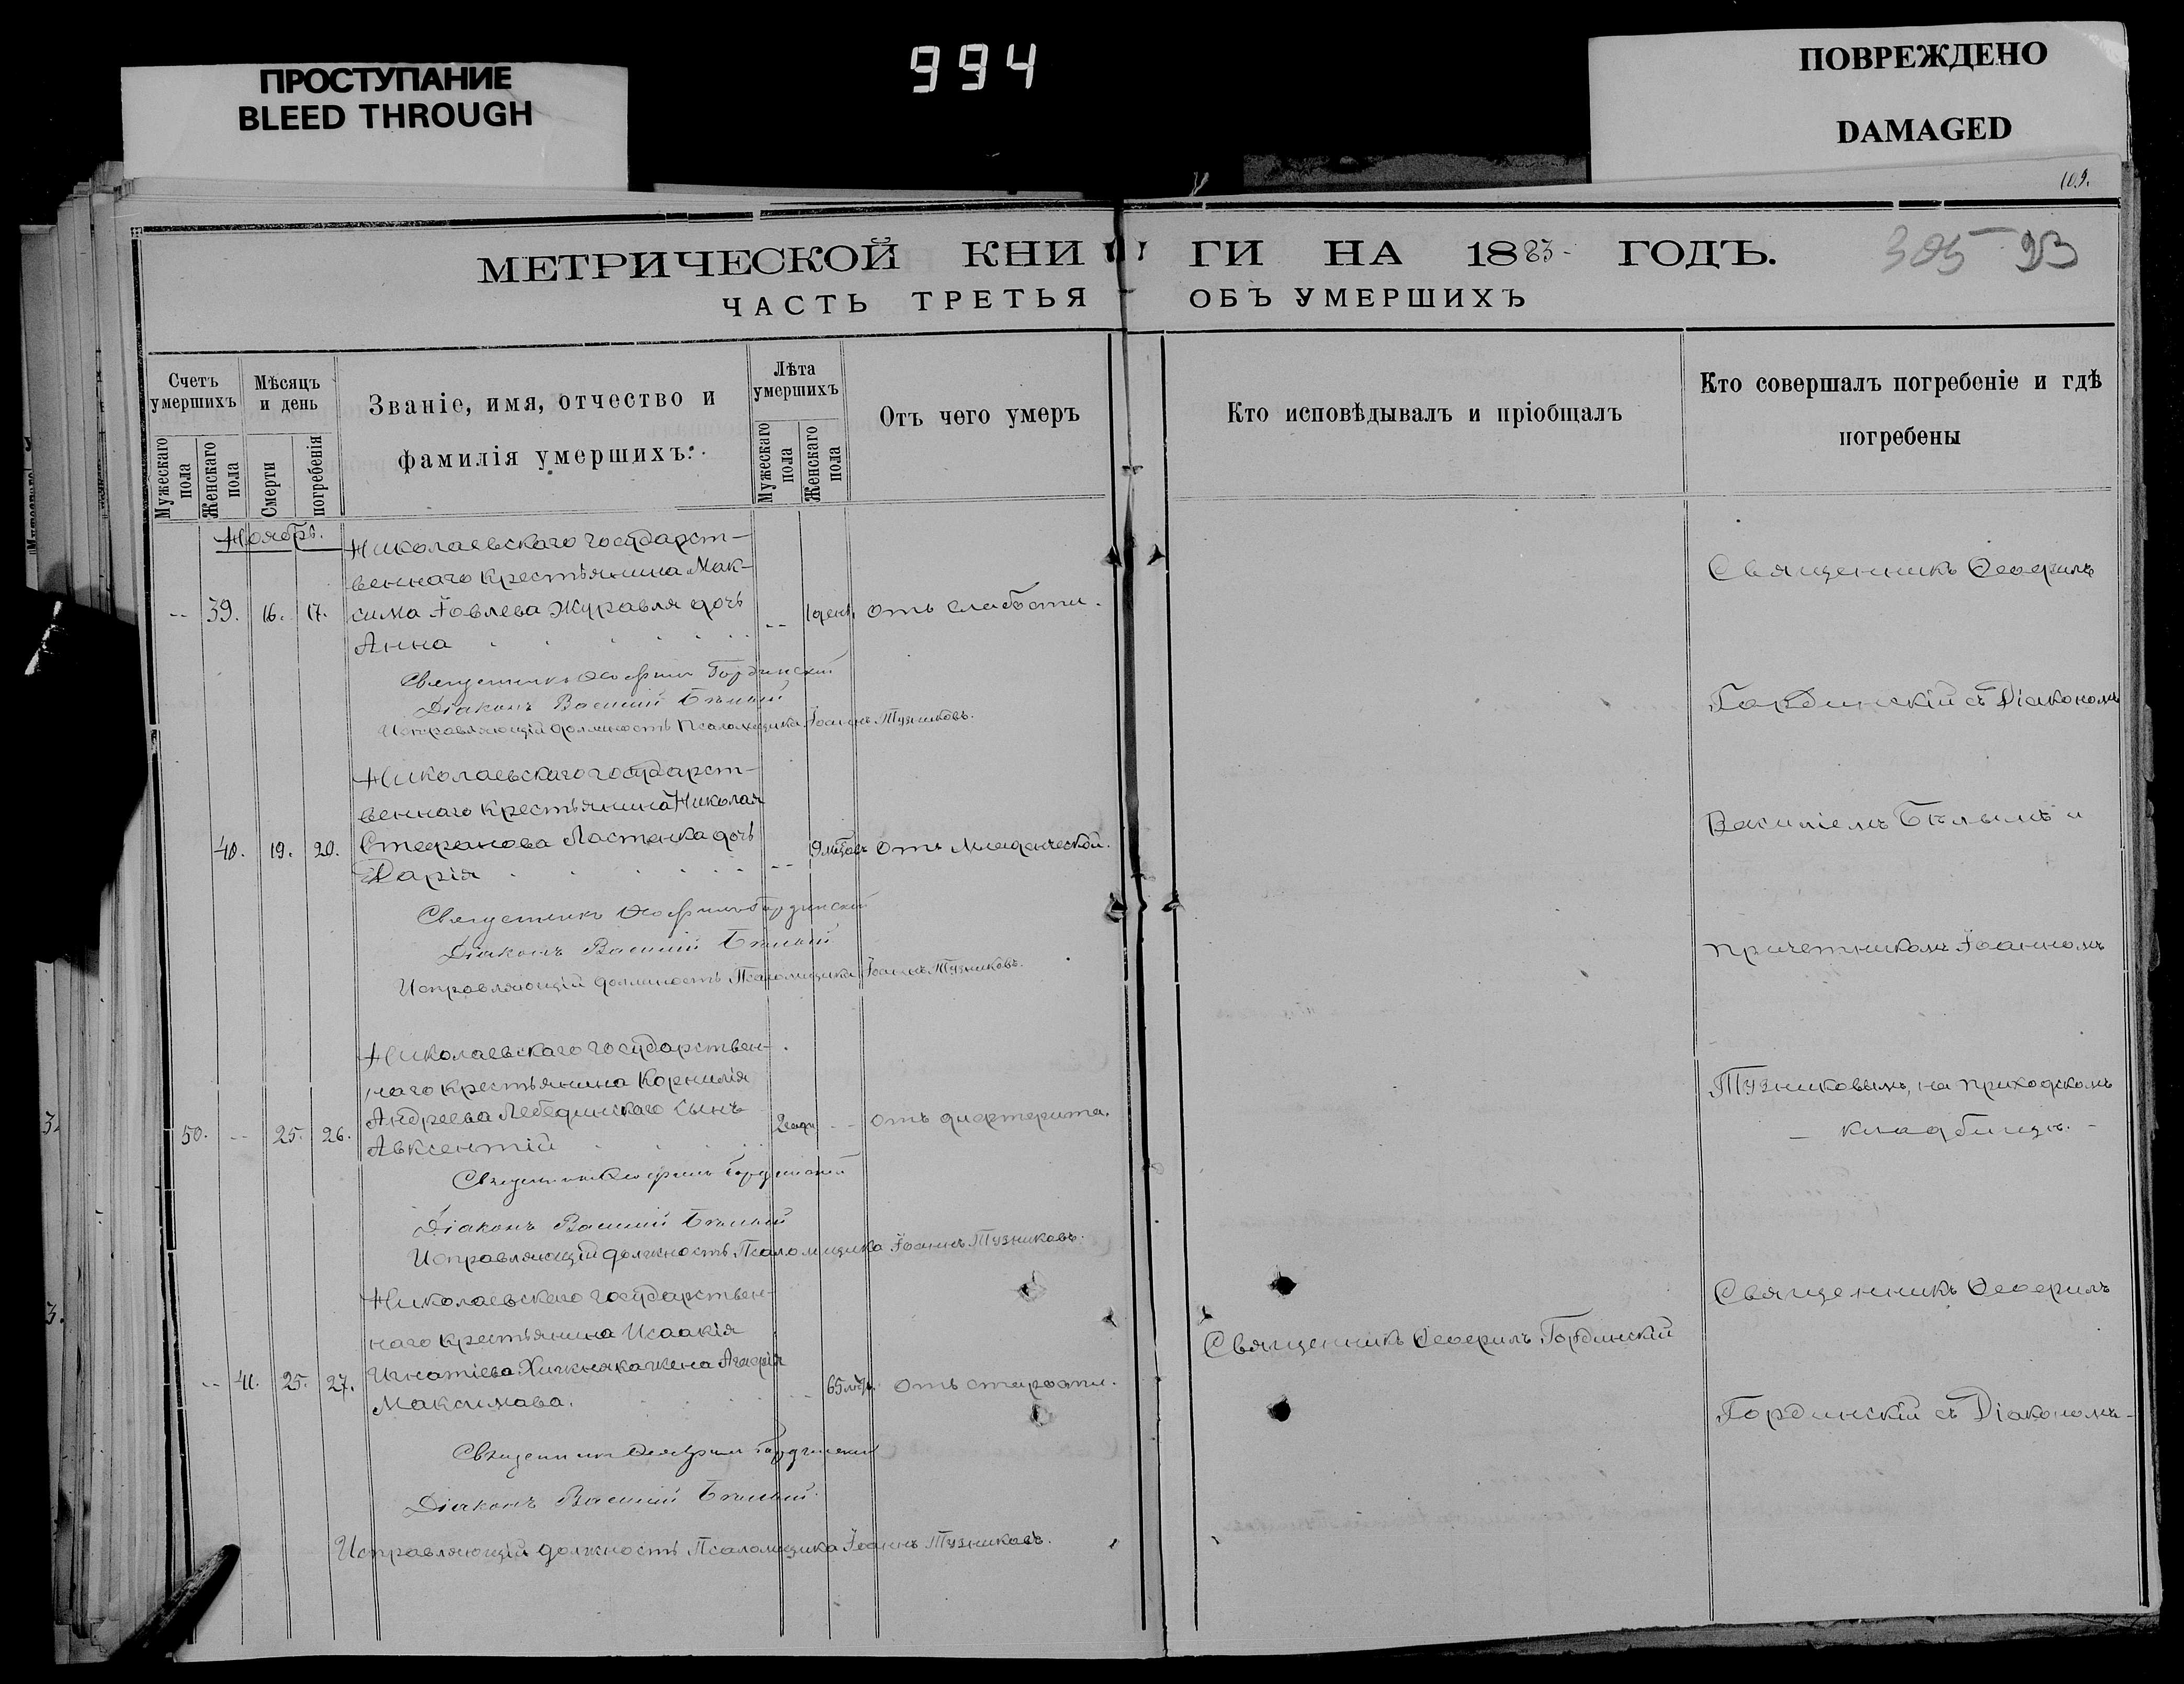 ПРОСТУПАНИЕ
BLEED THROUGH
994
ПОВРЕЖДЕНО
DAMAGED
109.
МЕТРИЧЕСКОЙ КНИГИ НА 1883 ГОДЪ.
305 93
ЧАСТЬ ТРЕТЬЯ ОБЪ УМЕРШИХЪ
Счетъ умершихъ
Мужескаго пола
Женскаго пола
Мѣсяцъ и день
Смерти
погребенія
Званіе, имя, отчество и
фамилія умершихъ.
Лѣта умершихъ
Мужескаго пола
Женскаго пола
Отъ чего умеръ
Кто исповѣдывалъ и пріобщалъ
Кто совершалъ погребеніе и гдѣ
погребены
Ноябрь.
Николаевскаго государст-
веннаго крестьянина Мак-
-- 39. 16. 17. сима Іовлева Журавля дочь -- 1 день. отъ слабости.
Анна
Священникъ Ѳеофилъ Гординскій
Діаконъ Василій Бѣлый
Исправляющій должность Псаломщика Іоаннъ Тузниковъ.
Николаевскаго государст-
веннаго крестьянина Николая
40. 19. 20. Стефанова Ластенка дочь -- 9 мѣсѧц. отъ младенческой.
Дарія
Священникъ Ѳеофилъ Гординскій
Діаконъ Василій Бѣлый
Исправляющій должность Псаломщика Іоаннъ Тузниковъ.
Николаевскаго государствен-
наго крестьянина Корнилія
Андреева Лебединскаго сынъ
50. -- 25. 26. Авксентій 2 года -- отъ дифтерита.
Священникъ Ѳеофилъ Гординскій
Діаконъ Василій Бѣлый
Исправляющій должность Псаломщика Іоаннъ Тузниковъ.
Николаевскаго государствен-
наго крестьянина Исаакія
Игнатіева жена Агафія
-- 41. 25. 27. Максимова. -- 65 лѣтъ. отъ старости.
Священникъ Ѳеофилъ Гординскій
Діаконъ Василій Бѣлый
Исправляющій должность Псаломщика Іоаннъ Тузниковъ.
Священникъ Ѳеофилъ Гординскій
Священникъ Ѳеофилъ
Гординскій съ Діакономъ
Василіемъ Бѣлымъ и
причетникомъ Іоанномъ
Тузниковымъ, на приходскомъ
- кладбищѣ. -
Священникъ Ѳеофилъ
Гординскій съ Діакономъ-